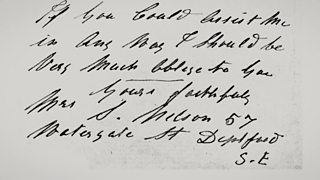 If You Could assist Me
in any Way I should be
Very Much oblige to You
Yours faithfully
Mrs S. Nelson 57
Watergate St Deptford
S.E